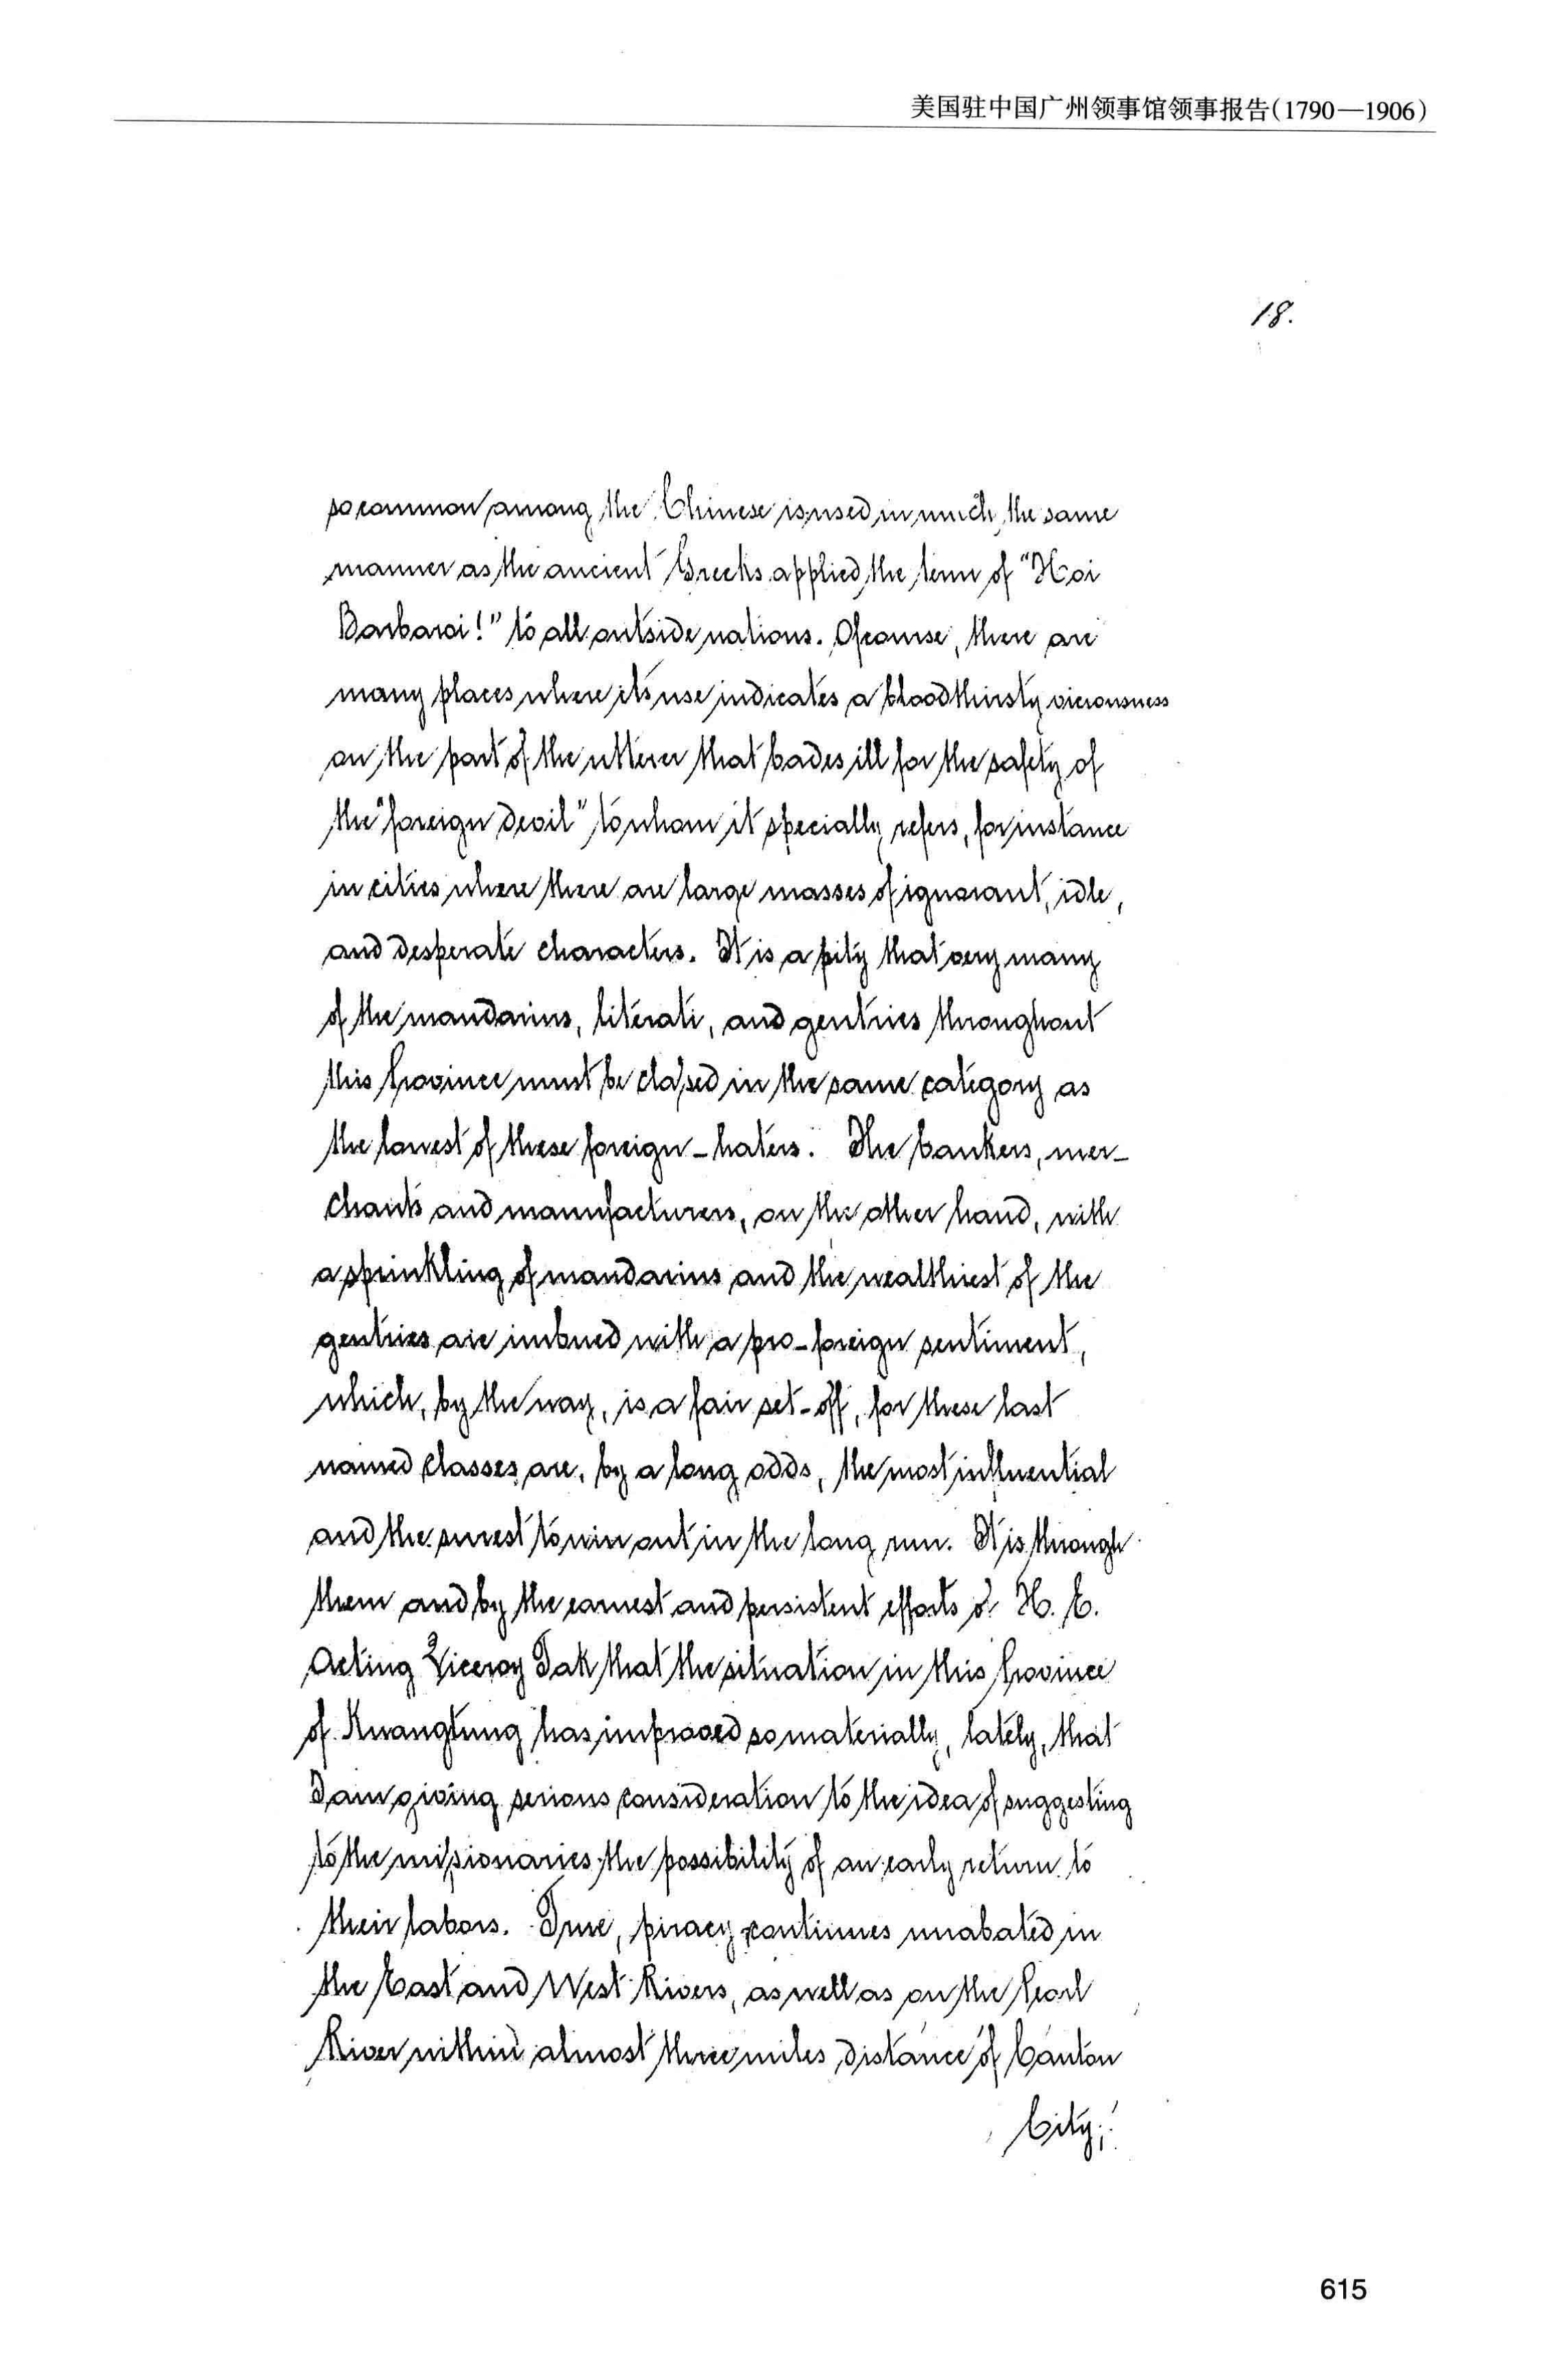 美国驻中国广州领事馆领事报告(1790—1906)
18.
so common among the Chinese is used in much the same
manner as the ancient Greeks applied the term of "Hoi
Barbaroi!" to all outside nations. Of course, there are
many places where its use indicates a bloodthirsty viciousness
on the part of the utterer that bades ill for the safety of
the "foreign devil" to whom it specially refers, for instance
in cities where there are large masses of ignorant, idle,
and desperate characters. It is a pity that very many
of the mandarins, literati, and gentries throughout
this Province must be classed in the same category as
the lowest of these foreign-haters. The bankers, mer-
chants and manufacturers, on the other hand, with
a sprinkling of mandarins and the wealthiest of the
gentries are imbued with a pro-foreign sentiment,
which, by the way, is a fair set-off, for these last
named classes are, by a long odds, the most influential
and the surest to win out in the long run. It is through
them and by the earnest and persistent efforts of H. E.
Acting Viceroy Tak that the situation in this Province
of Kuangtung has improved so materially, lately, that
I am giving serious consideration to the idea of suggesting
to the missionaries the possibility of an early return to
their labors. True, piracy continues unabated in
the East and West Rivers, as well as on the Pearl
River within almost three miles distance of Canton
City;
615